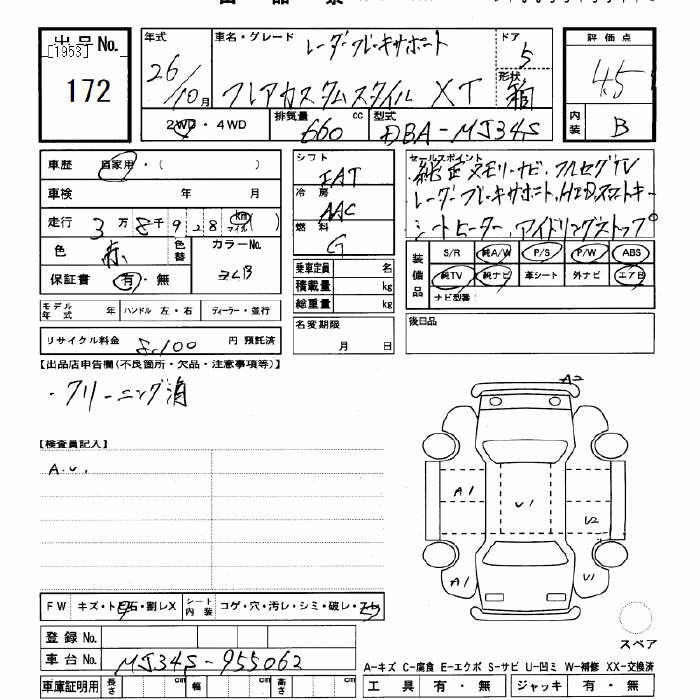 出品No. 年式 車名・グレード レーダーブレーキサポート ドア 5 評価点
[1953]
172 26/10月 フレアカスタムスタイル XT 形状 箱 4.5
2WD・4WD 排気量 660 cc 型式 DBA-MJ34S 内装 B
車歴 自家用・( ) シフト FAT セールスポイント
車検 年 月 冷房 AAC 純正メモリーナビ、フルセグTV
走行 3万8千9.8 km マイル ( ) 燃料 G レーダーブレーキサポート、HID、スマートキー
シートヒーター、アイドリングストップ
色 赤 色替 カラーNo. ZCB
保証書 有・無
乗車定員 名
積載量 kg
総重量 kg
装備品 S/R 純A/W P/S P/W ABS
純TV 純ナビ 革シート 外ナビ エアB
ナビ型番:
モデル年式 年 ハンドル 左・右 ディーラー・並行
名変期限 月 日
後日品
リサイクル料金 8,100 円 預託済
【出品店申告欄(不良箇所・欠品・注意事項等)】
・クリーニング済
A2
【検査員記入】
A.U.
A1 U1 U2
A1 U1
FW キズ・ト石・割レX シート内装 コゲ・穴・汚レ・シミ・破レ・スレ
登録No.
スペア
車台No. MJ34S-955062
A-キズ C-腐食 E-エクボ S-サビ U-凹ミ W-補修 XX-交換済
車庫証明用 長さ cm 幅 cm 高さ cm 工具 有・無 ジャッキ 有・無